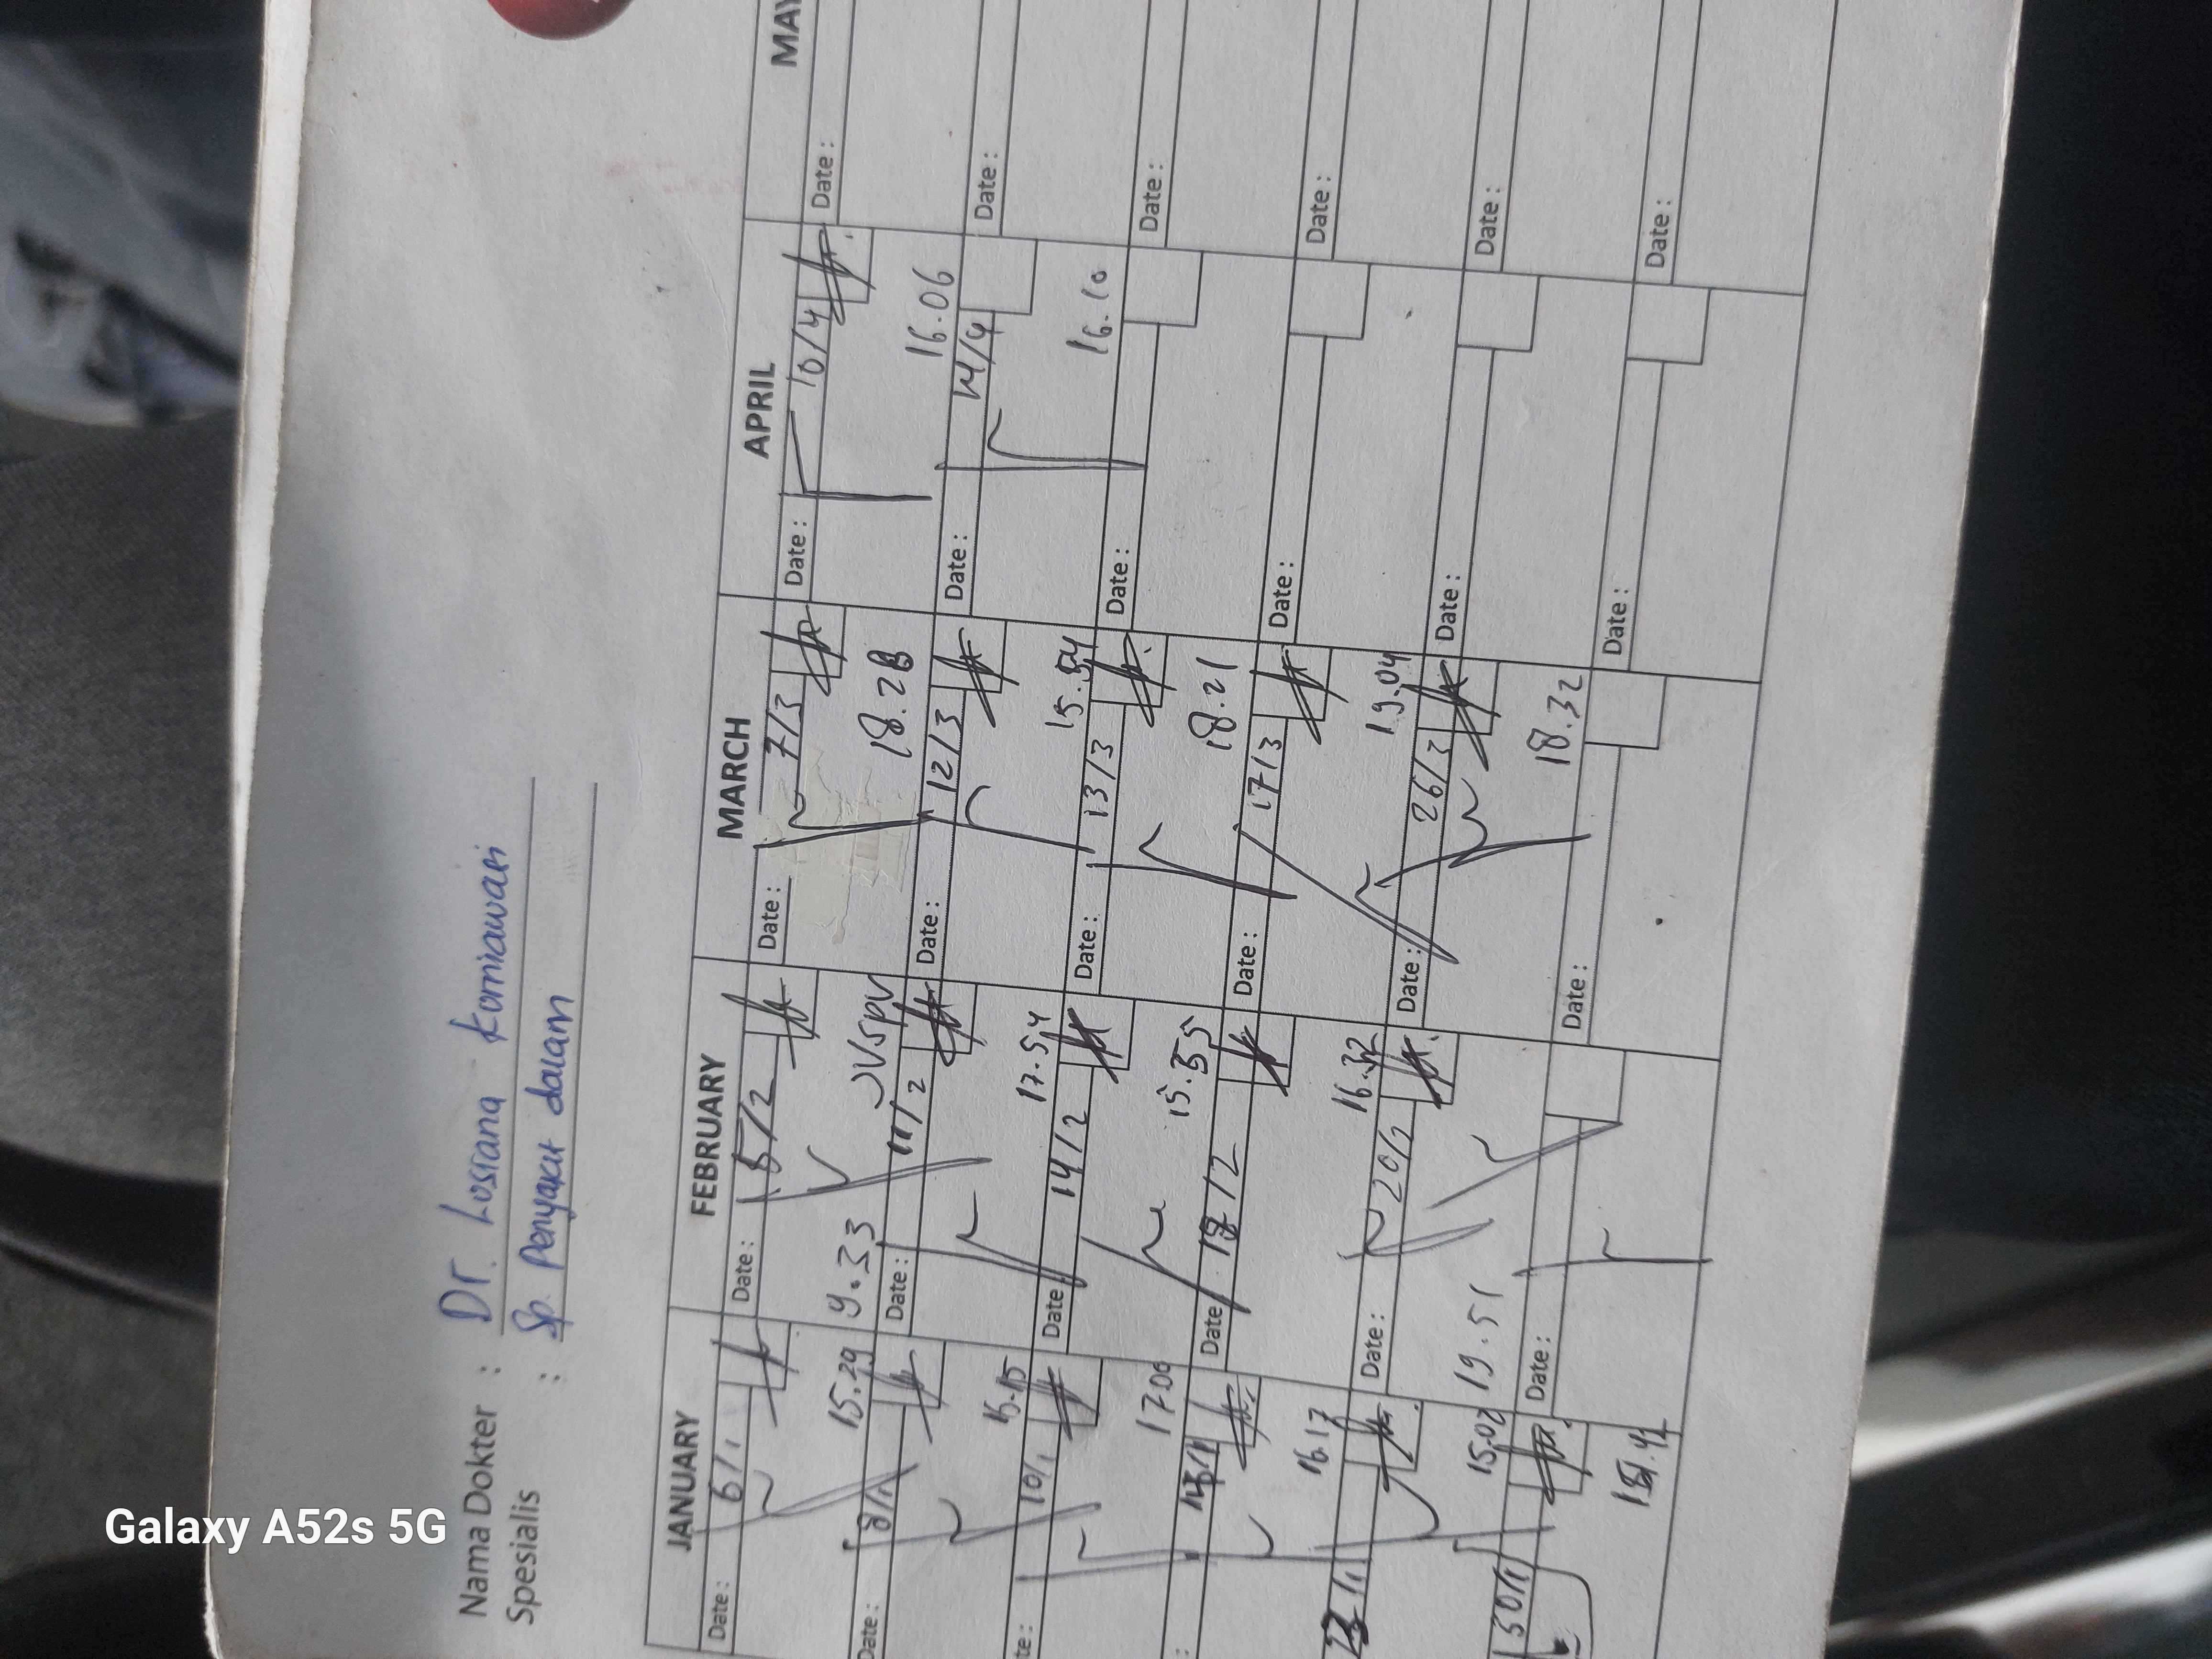 Nama Dokter : Dr. Lossiana Korniawari
Spesialis : Sp. Penyakit dalam
JANUARY FEBRUARY MARCH APRIL MAY
Date : 6/1 Date : 5/2 Date : 7/3 Date : 10/4 Date :
15.29 9.33 18.28 16.06
Date : 8/1 Date : 11/2 Date : 12/3 Date : 14/4 Date :
17.54 15.54 16.10
10/1 Date 14/2 Date : 13/3 Date : Date :
17.06 15.55 18.21
Date 18/2 Date : 17/3 Date : Date :
16.17 16.32 19.04
Date : 20/2 Date : 26/3 Date : Date :
15.02 19.51 18.32
30/1 Date : Date : Date : Date :
Galaxy A52s 5G